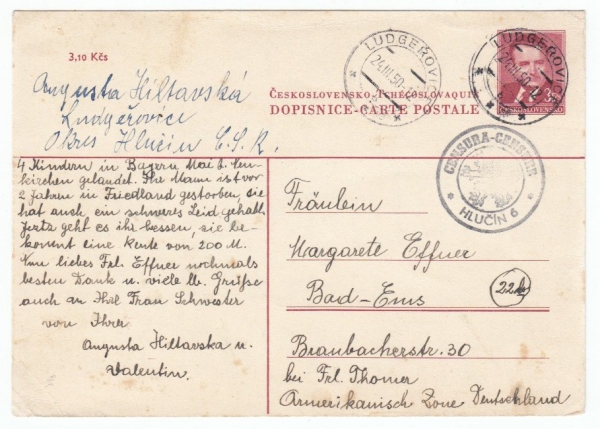 3,10 Kčs
LUDGEROVICE
24.III.50
LUDGEROVICE
ČESKOSLOVENSKO-TCHÉCOSLOVAQUIE
DOPISNICE-CARTE POSTALE
ČESKOSLOVENSKO
Augusta Hiltavská
Ludgeřovice
Okres Hlučín Č.S.R.
CENSURA-CENSEUR
HLUČÍN 6
4 Kindern in Bayern
kirchen gelandet. Ihr Mann ist vor
2 Jahren in Friedland gestorben, sie
hat auch ein schweres Leid gehabt.
Jetzt geht es ihr besser, sie be-
kommt eine Rente von 200 M.
Nun liebes Frl. Effner nochmals
besten Dank u. viele lb. Grüße
auch an Ihre Frau Schwester
von Ihrer
Augusta Hiltavska u.
Valentin.
Fräulein
Margarete Effner
Bad-Ems
22b
Braubacherstr. 30
bei Frl. Thomer
Amerikanisch Zone Deutschland